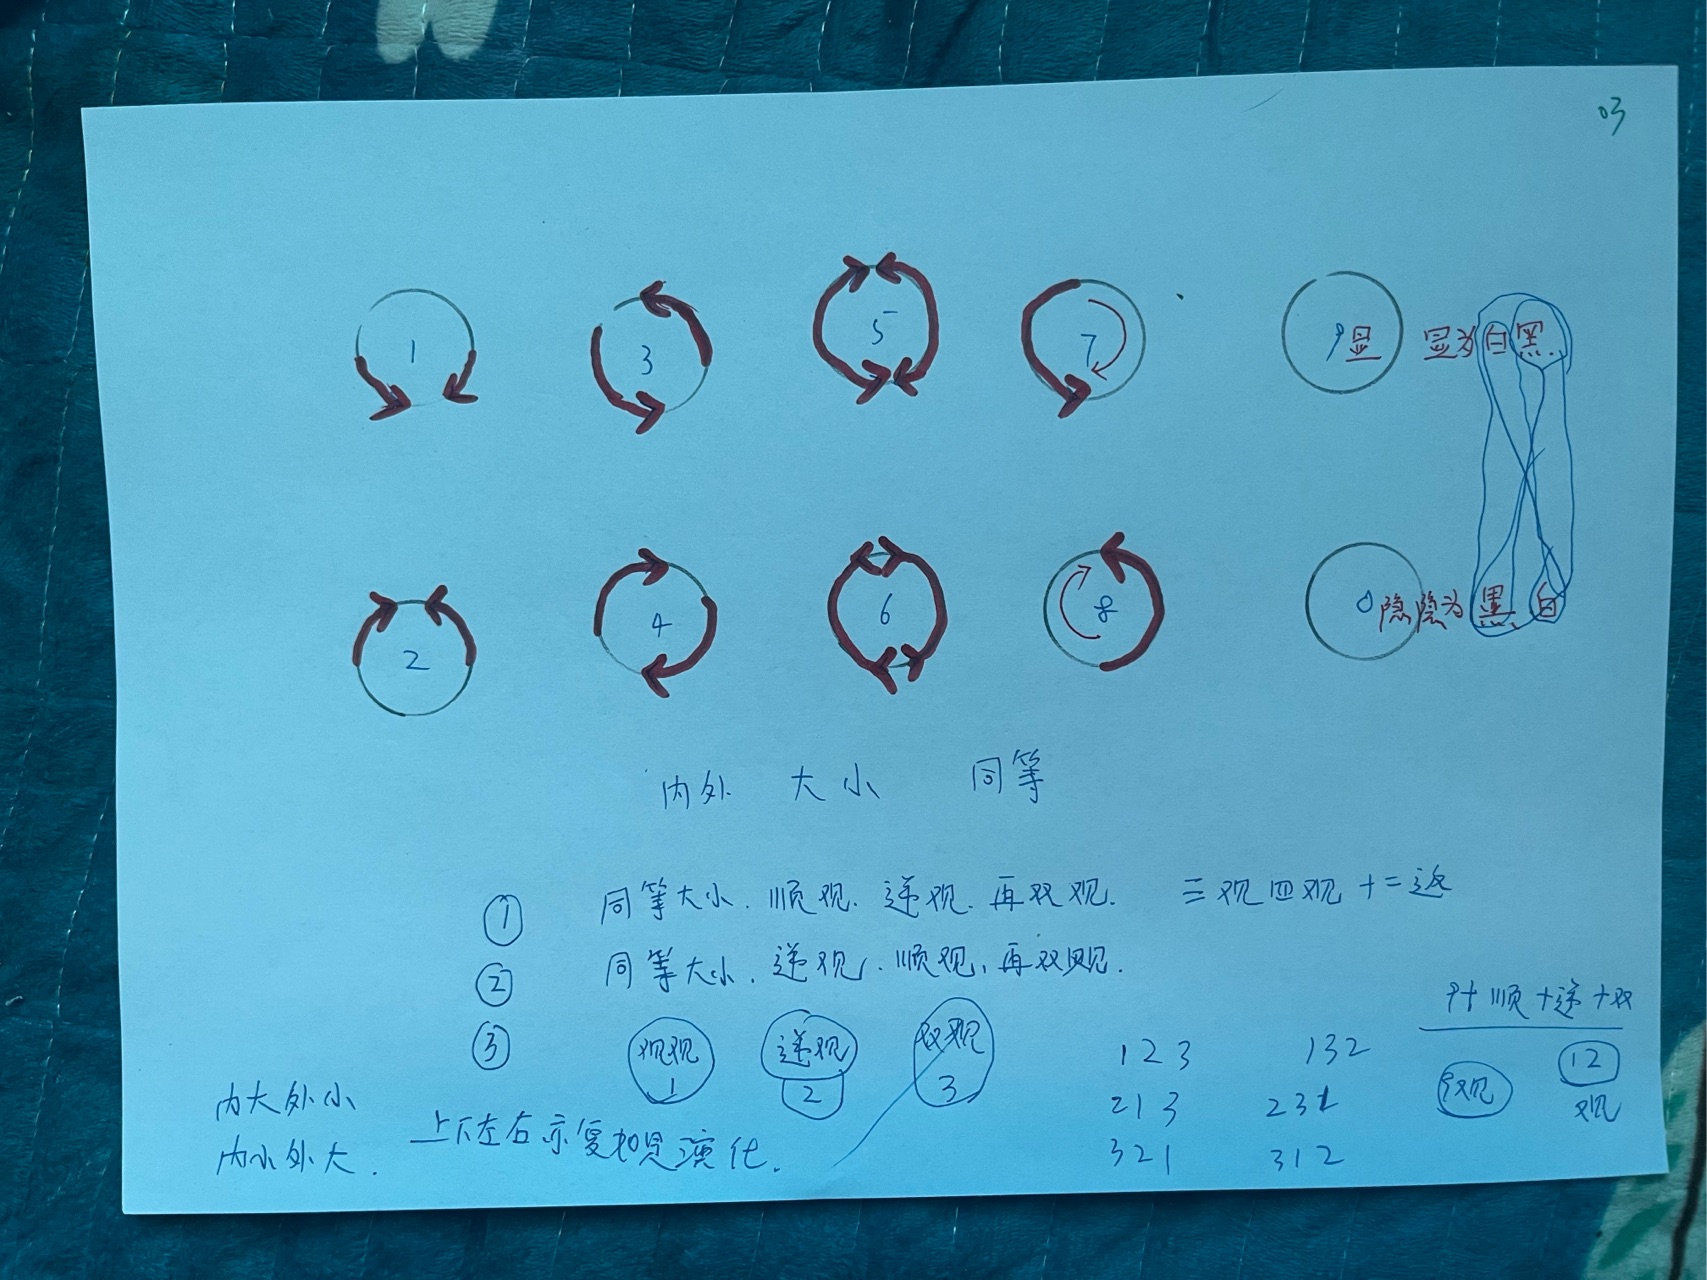 03
1
3
5
7
9显 显为白黑
2
4
6
8
0隐 隐为黑白
内外 大小 同等
① 同等大小.顺观.逆观.再双观. 三观四观十二返
② 同等大小.逆观.顺观.再双观.
9+顺+逆+双
③ 观观 1 逆观 2 双观 3
123 132
213 231
321 312
9观 12观
内大外小
内小外大.
上下左右亦复如是演化.